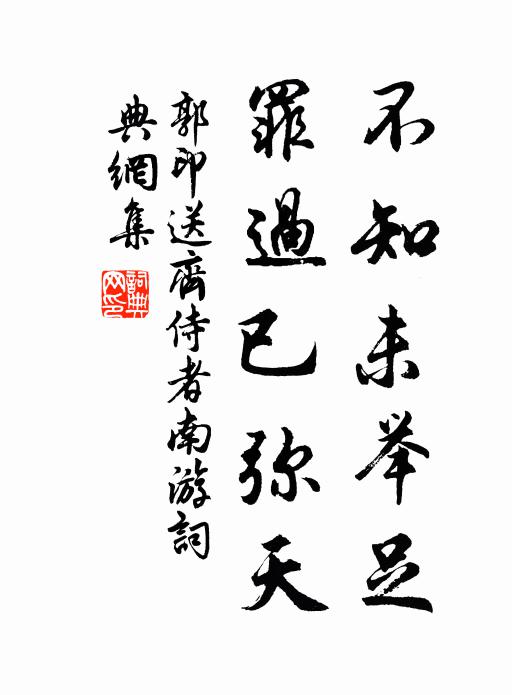 不知未举足
罪過已弥天
郭印送齊侍者南游詞
典網集
詞典网印